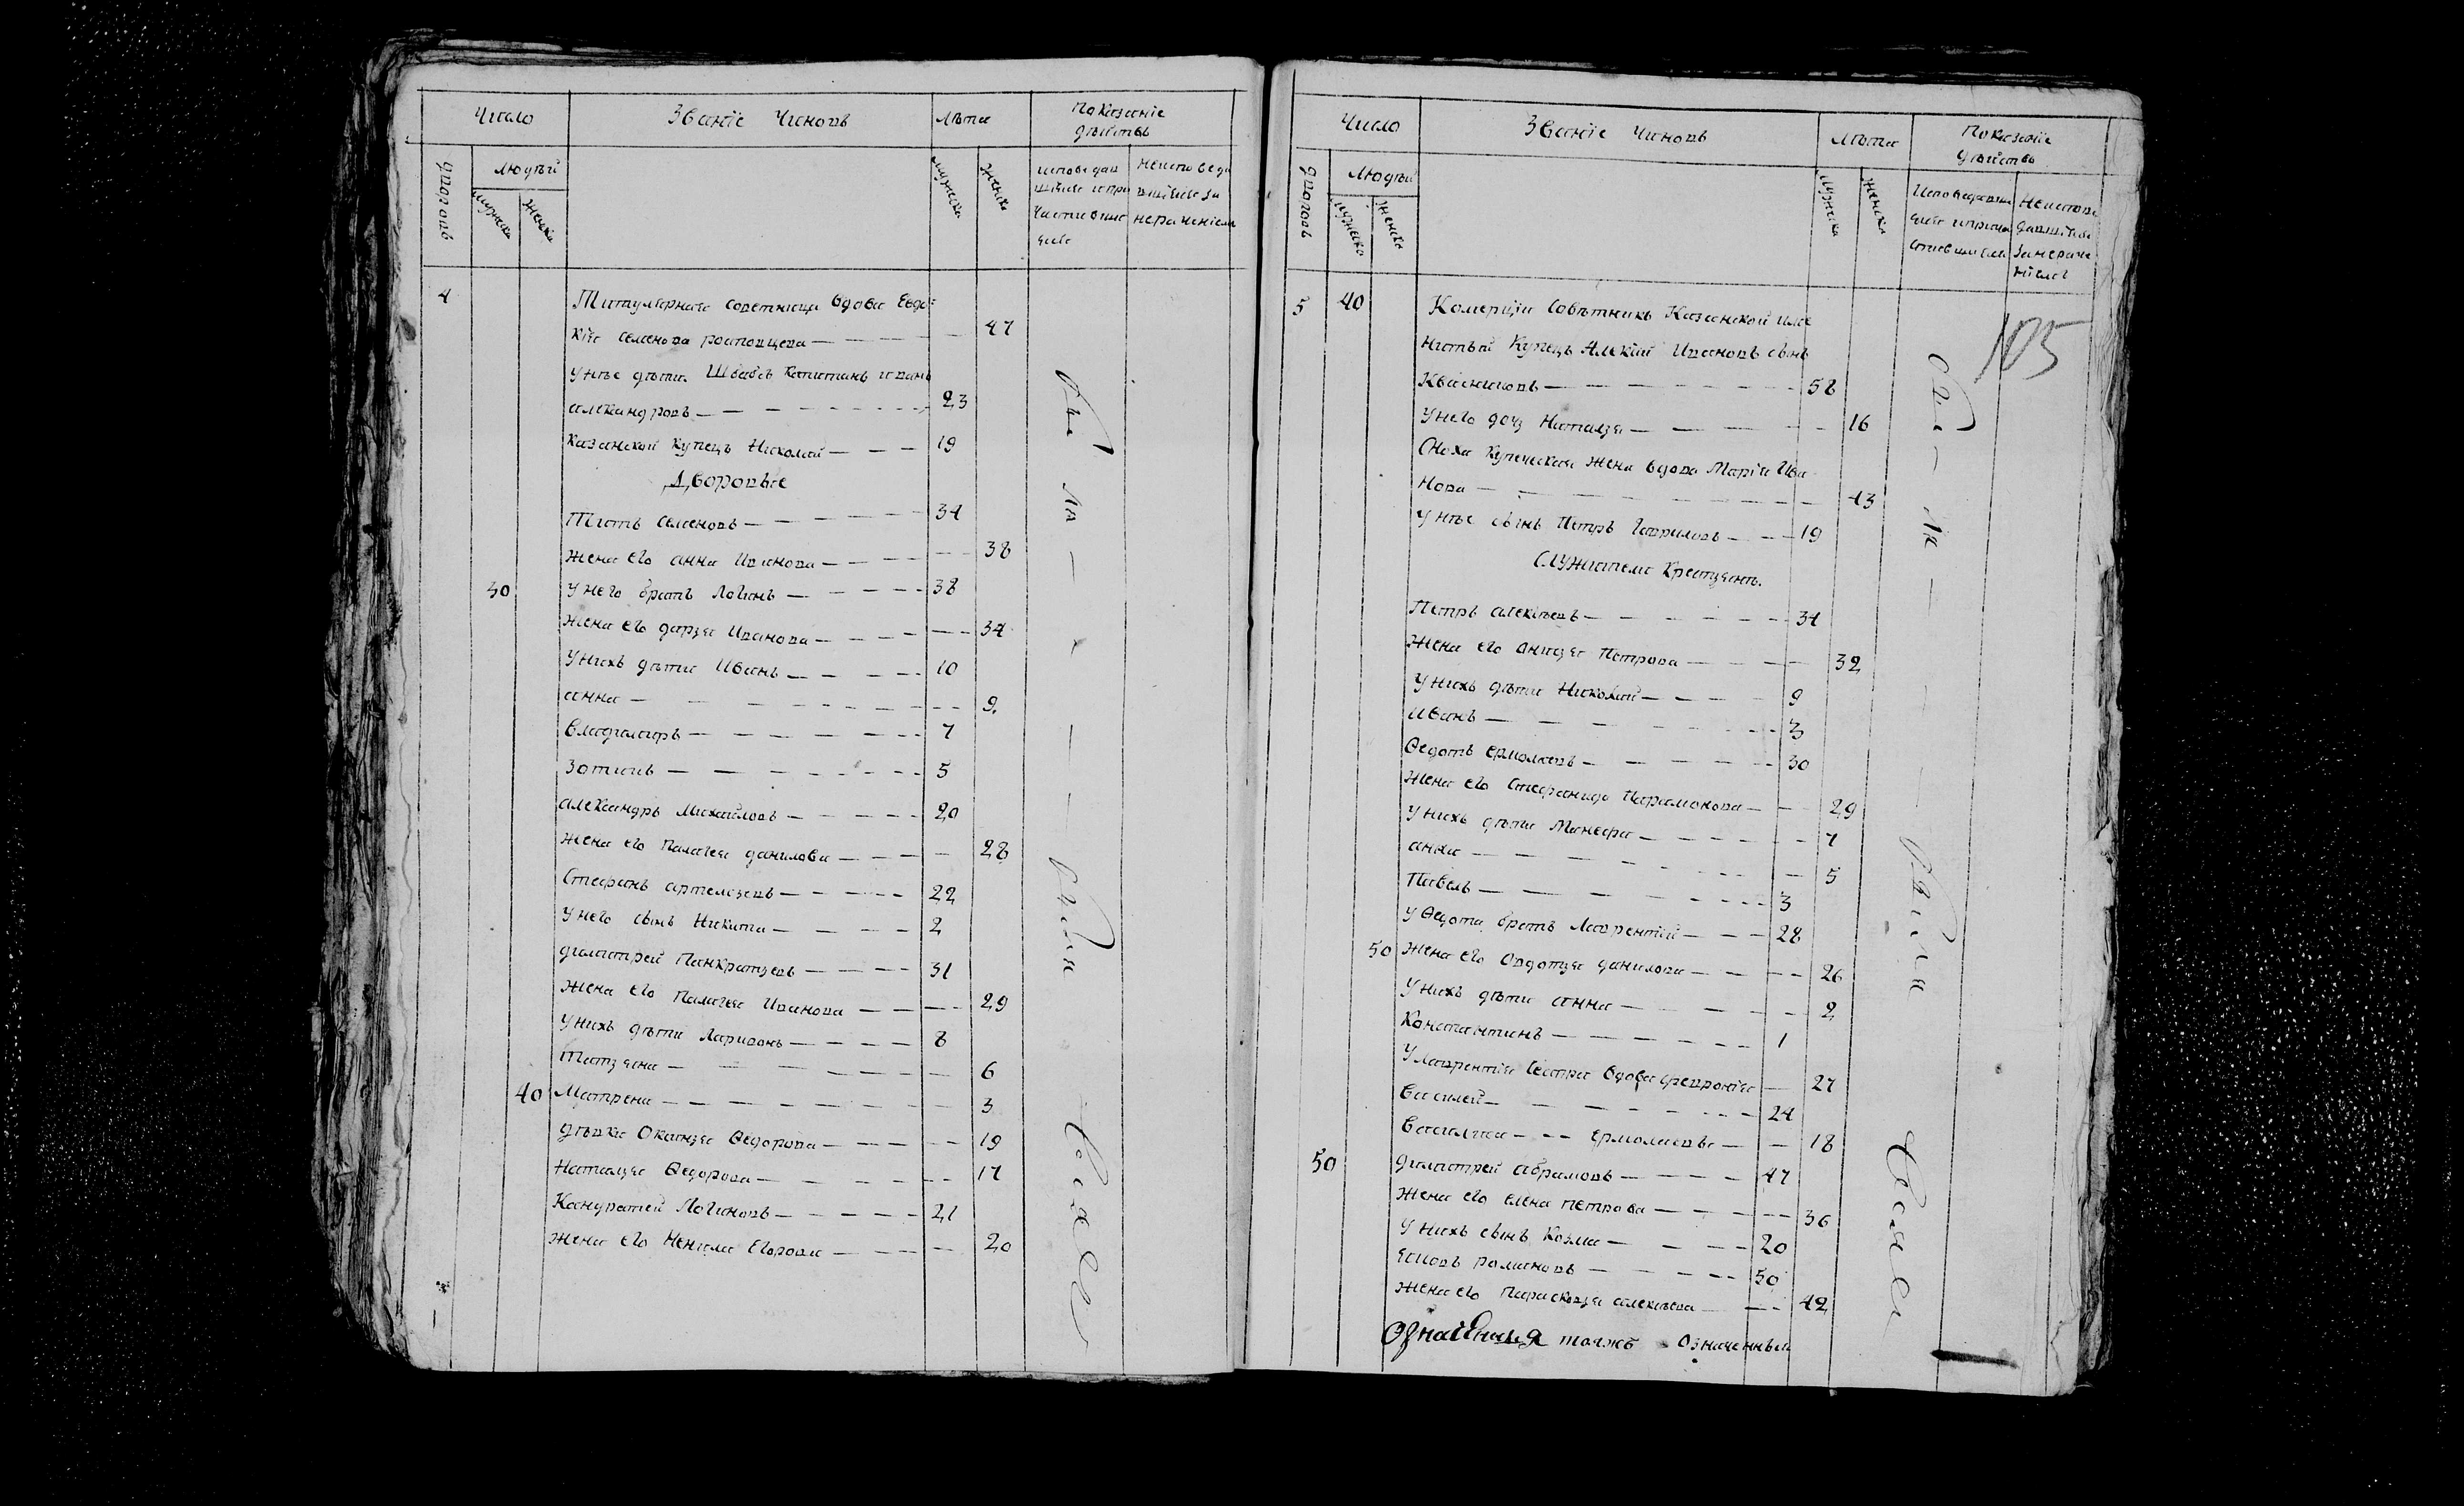 Число
Званіе Чиновъ
Лѣта
Показаніе
дѣйствъ
дворовъ
Людѣй
мужеска
женска
мужеска
женска
исповедав
шіися и при
частивши
еся
неисповеда
вшіися за
нераченіемъ
4
Титулярная советница вдова Евдо=
кія семенова ростовцева — 47
У нѣе дѣти. Штабсъ капитанъ иванъ
александровъ — 23
казанской купецъ Николай — 19
Дворовые
Титъ семеновъ — 34
жена его анна Иванова — 38
30 У него братъ Логинъ — 38
жена его дарья Иванова — 34
У нихъ дѣти Иванъ — 10
анна — 9
владимиръ — 7
Зотикъ — 5
александръ Михайловъ — 20
жена его Палагея данилова — 28
Стефанъ артемьевъ — 22
У него сынъ Никита — 2
димитрей Панкратьевъ — 31
жена его Палагея Иванова — 29
У нихъ дѣти Ларивонъ — 8
Татьяна — 6
40 Матрена — 3
дѣвка Оксинья Ѳедорова — 19
Наталья Ѳедорова — 17
Кандратей Логиновъ — 21
жена его Ненила Егорова — 20
Число
Званіе Чиновъ
Лѣта
Показаніе
дѣйствъ
дворовъ
Людѣй
мужеска
женска
мужеска
женска
Исповедавши
еся и прича
стившися
Неиспове
давшіися
за нераче
ніемъ
105
5 40 Комерціи Совѣтникъ Казанской име
нитый Купецъ Алексій Ивановъ сынъ
Квасниковъ — 58
У него дочь Наталья — 16
Сноха купеческая жена вдова Марія Ива
нова — 43
У нѣе сынъ Петръ Гавриловъ — 19
Служители Крестьяня.
Петръ алексѣевъ — 34
Жена его анисья Петрова — 32
У нихъ дѣти Николай — 9
Иванъ — 3
Ѳедотъ ермолаевъ — 30
Жена его Стефанида Парамонова — 29
У нихъ дѣти Манефа — 7
анна — 5
Павелъ — 3
У Ѳедота братъ Лаврентій — 28
50 Жена его Овдотья данилова — 26
У нихъ дѣти анна — 2
Констинтинъ — 1
У Лаврентія Сестра вдова февронія — 27
Василей — 24
Василиса — ермолаевы — 18
50 димитрей абрамовъ — 47
Жена его елена петрова — 36
У нихъ сынъ Козма — 20
яковъ романовъ — 50
Жена его Парасковья алексѣева — 42
тоажъ Означенныя